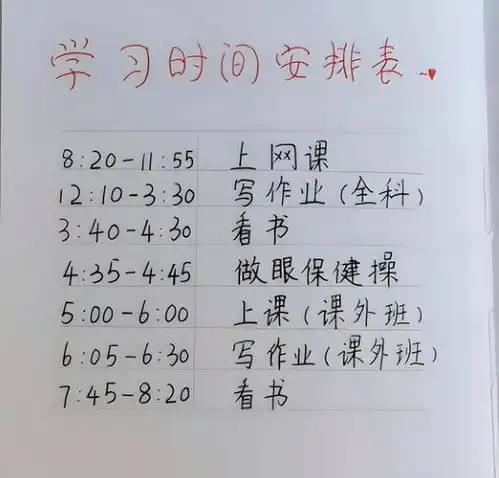 学习时间安排表
8:20-11:55 上网课
12:10-3:30 写作业(全科)
3:40-4:30 看书
4:35-4:45 做眼保健操
5:00-6:00 上课(课外班)
6:05-6:30 写作业(课外班)
7:45-8:20 看书